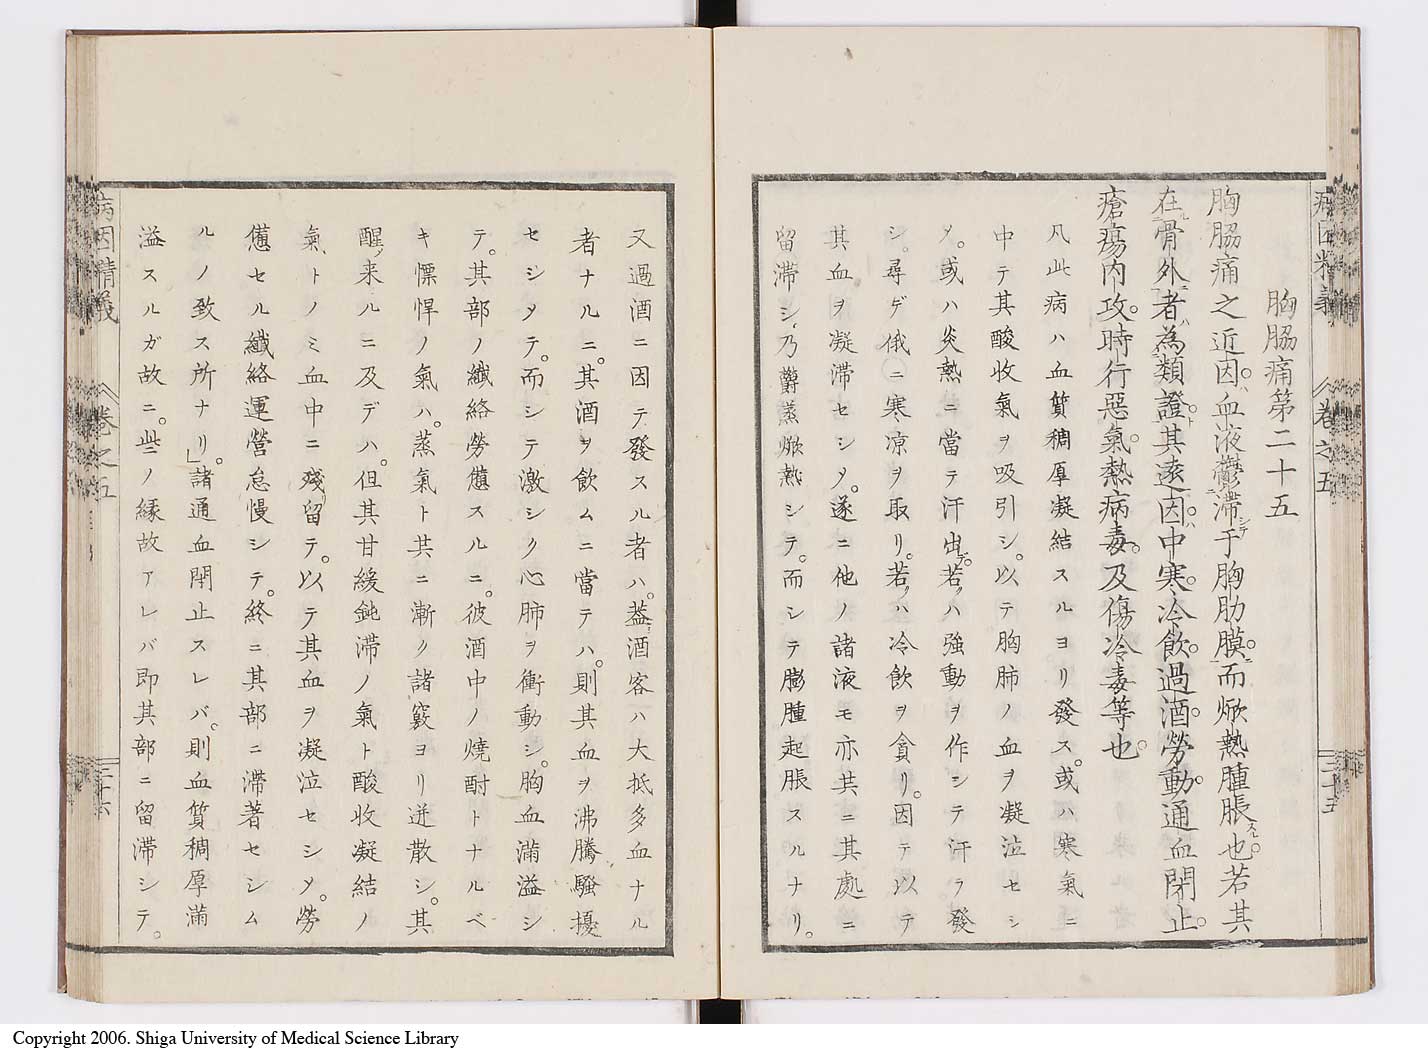 病因精義 卷之五 三十五
胸脇痛第二十五
胸脇痛之近因。ハ血液鬱滯シテ于胸肋膜。ニ而焮熱腫脹スル也。若其
在ル骨外ニ者ハ為ス類證。ト其遠因。ハ中寒。冷飲。過酒。勞動。通血閉止。
瘡瘍内攻。時行惡氣。熱病毒。及傷冷毒等也。
凡此病ハ血質稠厚凝結スルヨリ發ス。或ハ寒氣ニ
中テ其酸收氣ヲ吸引シ。以テ胸肺ノ血ヲ凝泣セシ
メ。或ハ炎熱ニ當テ汗出デ。若ハ強動ヲ作シテ汗ヲ發
シ。尋ゲ俄ニ寒凉ヲ取リ。若ハ冷飲ヲ貪リ。因テ以テ
其血ヲ凝滯セシメ。遂ニ他ノ諸液モ亦共ニ其處ニ
留滯シ、乃欝蒸焮熱シテ。而シテ膨腫起脹スルナリ。
又過酒ニ因テ發スル者ハ。蓋シ酒客ハ大抵多血ナル
者ナルニ。其酒ヲ飲ムニ當テハ。則其血ヲ沸騰騷擾
セシメテ。而シテ激シク心肺ヲ衝動シ。胸血滿溢シ
テ。其部ノ纖絡勞憊スルニ。彼酒中ノ燒酎トナルベ
キ慓悍ノ氣ハ。蒸氣ト共ニ漸ク諸竅ヨリ迸散シ。其
醒メ来ルニ及デハ。但其甘緩鈍滯ノ氣ト酸收凝結ノ
氣トノミ血中ニ殘留テ。以テ其血ヲ凝泣セシメ。勞
憊セル纖絡運營怠慢シテ。終ニ其部ニ滯著セシム
ルノ致ス所ナリ」。諸通血閉止スレバ。則血質稠厚滿
溢スルガ故ニ。些ノ縁故アレバ即其部ニ留滯シテ。
病因精義 卷之五 三十六
Copyright 2006. Shiga University of Medical Science Library